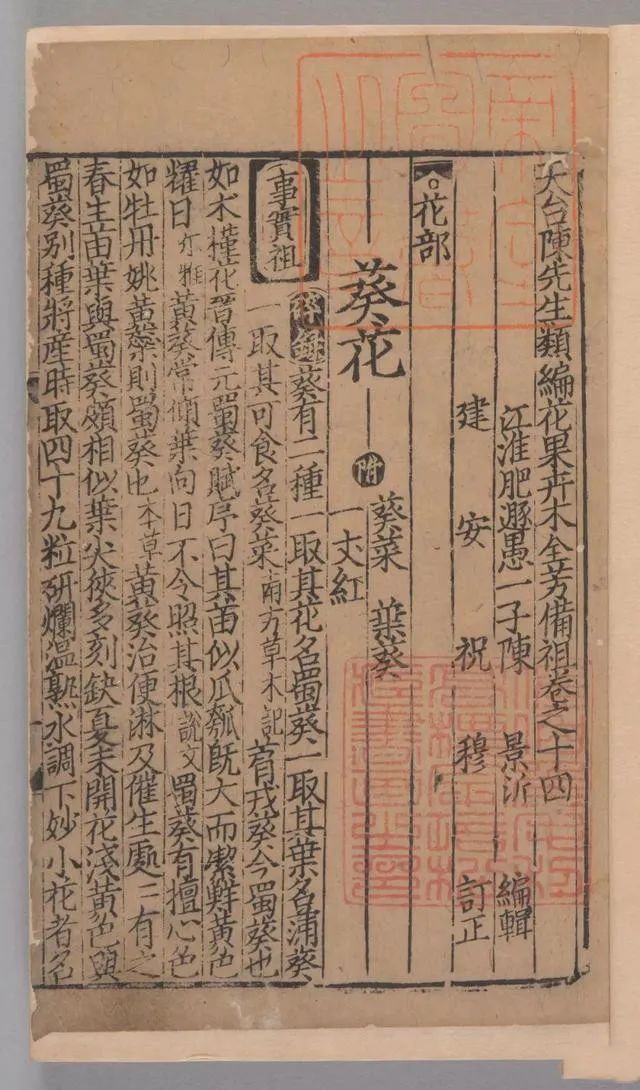 天台陳先生類編花果卉木全芳備祖卷之十四
江淮肥遯愚一子陳 景沂 編輯
建 安 祝 穆 訂正
花部
葵花 附 葵菜 葉葵
一丈紅
事實祖
碎錄葵有二種一取其花名蜀葵一取其葉名蒲葵
一取其可食名葵菜南方草木記 菺戎葵今蜀葵也
如木槿花晉傅元蜀葵賦序曰其苗似瓜瓠旣大而潔鮮黃色
耀日尔雅黃葵常傾葉向日不令照其根說文 蜀葵有擅心色
如牡丹姚黃蘂則蜀葵也本草黃葵治便淋及催生處二有之
春生苗葉與蜀葵頗相似葉尖狹多刻缺夏末開花淺黃色與
蜀葵別種將産時取四十九粒研爛溫熟水調下妙小花者名